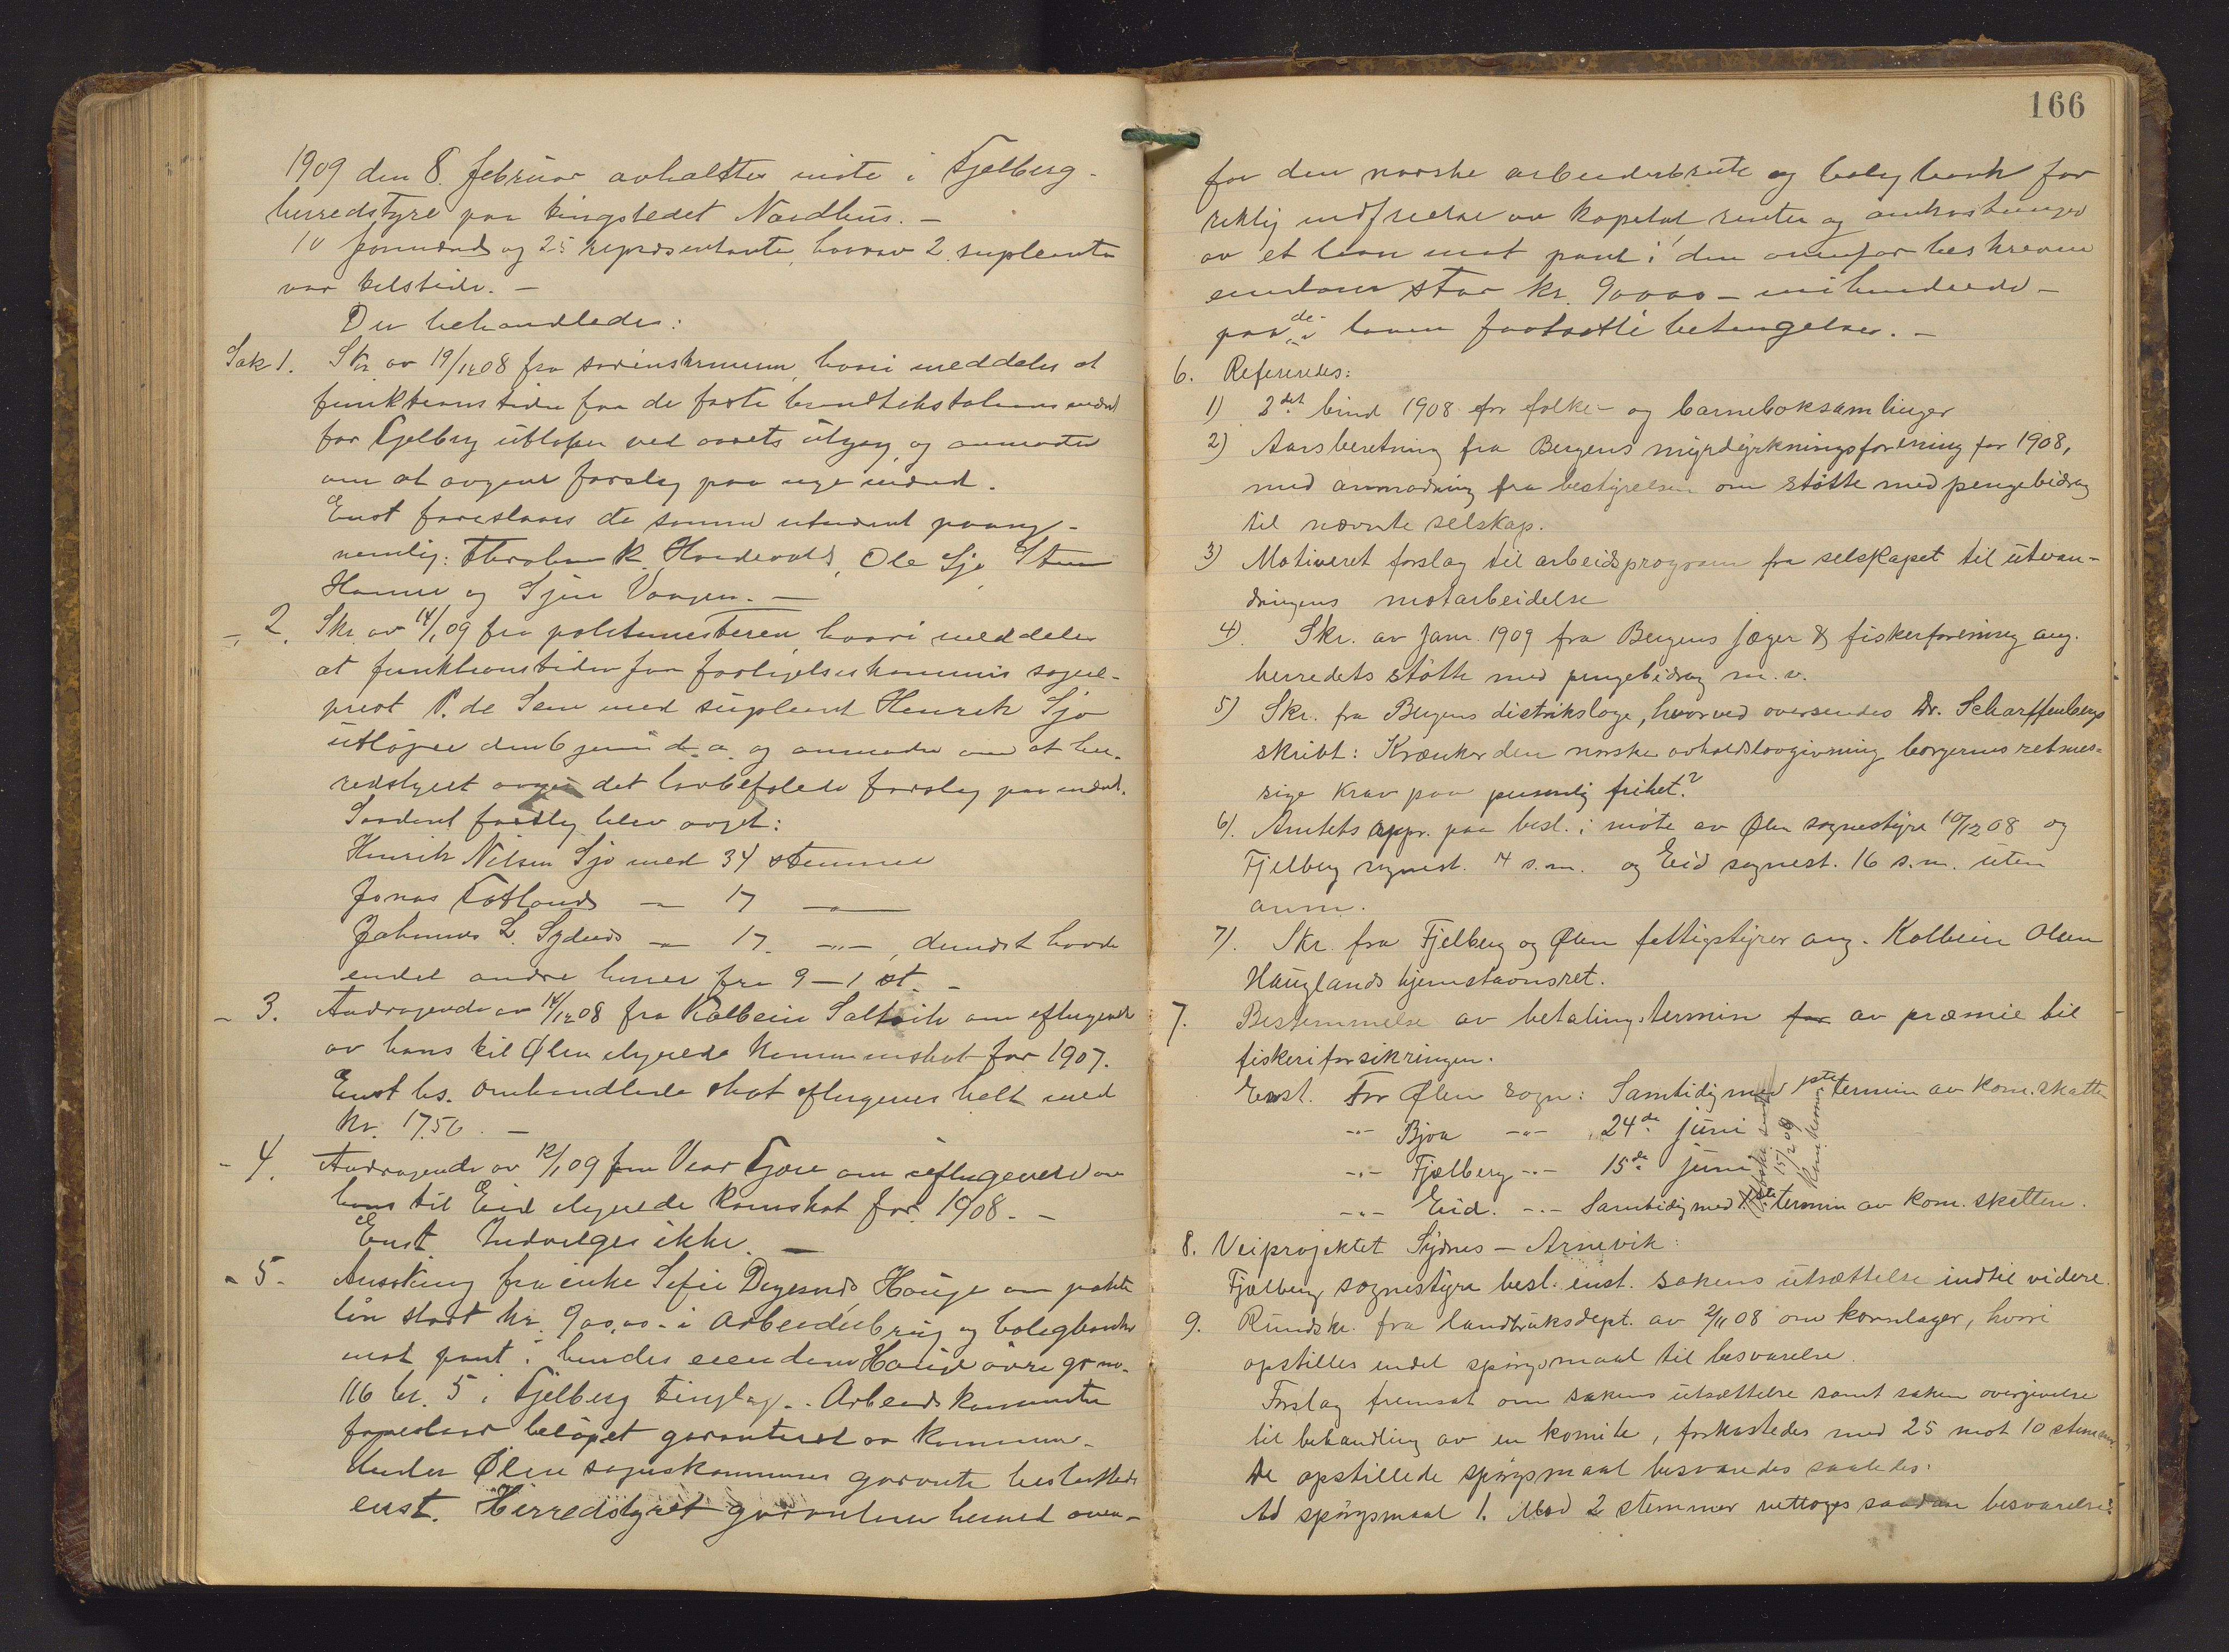 1909 den 8. februar avholdtes møte i Fjelberg
herredstyre paa tingstedet Nordhus. –
10 formænd og 25 repræsentanter, hvorav 2 suplenter
var tilstede. –
Der behandledes:
Sak 1. Skr. av 19/12 08 fra sorenskriveren, hvori meddeles at
funktionstiden for de faste brandtakstations mænd
for Fjelberg utløper ved aarets utgang, og anmoder
om at avgive forslag paa nye mænd.
Enst foreslaaes de samme utnævnt paany,
nemlig: Thrakm K. Hardevold, Ole Sjo, Sten
Hamre og Sjur Vaagen. –
-„- 2. Skr. av 14/1 09 fra politimesteren, hvori meddeles
at funktionstiden for forligelseskommis. sogne-
prest P. de Seve med suplent Henrik Sjo
utløper den 6 juni d. a. og anmoder om at her-
redstyret avgir det lovbefalede forslag paa mænd.
Saadant forslag blev avget:
Henrik Nilsen Sjo med 34 stemmer
Jonas Totland – 17 –„–
Johannes L. Sydnes –„– 17. –„–, dernæst havde
endel andre herrer fra 9 – 1 st. –
- 3. Andragende av 14/12 08 fra Kolbein Saltvik om eftergivelse
av hans til Ølen utlignede kommuneskat for 1907.
Enst bs. omhandlede skat eftergives helt med
kr. 17.56. –
- 4. Andragende av 12/1 09 fra Vear Tjore om eftergivelse av
hans til Eid utlignede komskat for 1908. –
Enst. Indvilges ikke. –
- 5. Ansøkning fra enke Sofie Dagsnd. Hauge om
lån stort kr. 900,00 - i arbeiderbruk og boligbanken
mot pant i hendes eiendom Hauge øvre gr. no.
116 br. 5 i Fjelberg tinglag. - Arbeidskomiteen
foreslaar beløpet garanteret av kommunen.
Under Ølen sognekommunes garanti besluttedes
enst. Herredstyret garanterer herved oven-
166
for den norske arbeiderbruk og boligbank for
riktig indfrielse av kapital, renter og omkostninger
av et laan mot pant i den ovenfor beskrevne
eiendom stor kr. 900,00 – nihundrede –
paa de i loven fastsatte betingelser. –
6. Refereredes:
1) 2det bind 1908 for folke- og barneboksamlinger
2) Aarsberetning fra Bergens myrdyrkningsforening for 1908,
med anmodning fra bestyrelsen om støtte med pengebidrag
til nævnte selskap.
3) Motiveret forslag til arbeidsprogram fra selskapet til utvan-
dringens motarbeidelse
4). Skr. av janr. 1909 fra Bergens jæger & fiskerforening ang.
herredets støtte med pengebidrag m. v.
5) Skr. fra Bergens distriksloge, hvorved oversendes Dr. Scharffenbergs
skribt: Krænker den norske avholdslovgivning borgernes retmes-
sige krav paa personlig frihet?
6). Amtets appr. paa besl. i møte av Ølen sognestyre 10/12 08 og
Fjelberg sognest. 14 s.m. og Eid sognest. 16 s.m. uten
anm.
7). Skr. fra Fjelberg og Ølen fattigstyrer ang. Kolbein Olsen
Hauglands hjemstavnsret.
7. Bestemmelse av betalingstermin for av præmie til
fiskeriforsikringen.
Enst. For Ølen sogn: Samtidig med 1ste termin av kom. skatten
-„- Bjoa -„- 24de juni
-„- Fjælberg -„- 15de juni
-„- Eid. -„- Samtidig med 1ste termin av kom. skatten.
15/2 09
8. Veiprojektet Sydnes – Arnevik:
Fjælberg sognestyre besl. enst. sakens utsættelse indtil videre.
9. Rundskr. fra landbruksdept. av 2/11 08 om kornlager, hvori
opstilles endel spørgsmaal til besvarelse.
Forslag fremsat om sakens utsættelse samt saken overgivelse
til behandling av en komite, forkastedes med 25 mot 10 stemmer
De opstillede spørgsmaal besvaredes saaledes:
Ad spørgsmaal 1. Mod 2 stemmer vettoges saadan besvarelse: